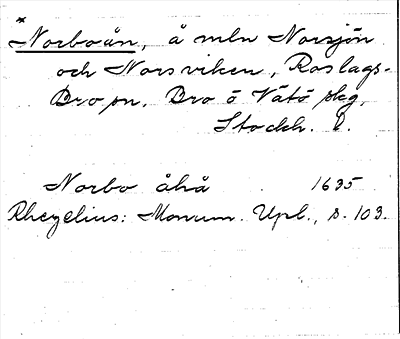 * Norboån, å mln Norsjön
och Norsviken, Roslags-
Bro sn, Bro o Vätö skg,
Stockh. l.
Norbo åhå 1635
Rhezelius: Monum. Upl., s. 103.